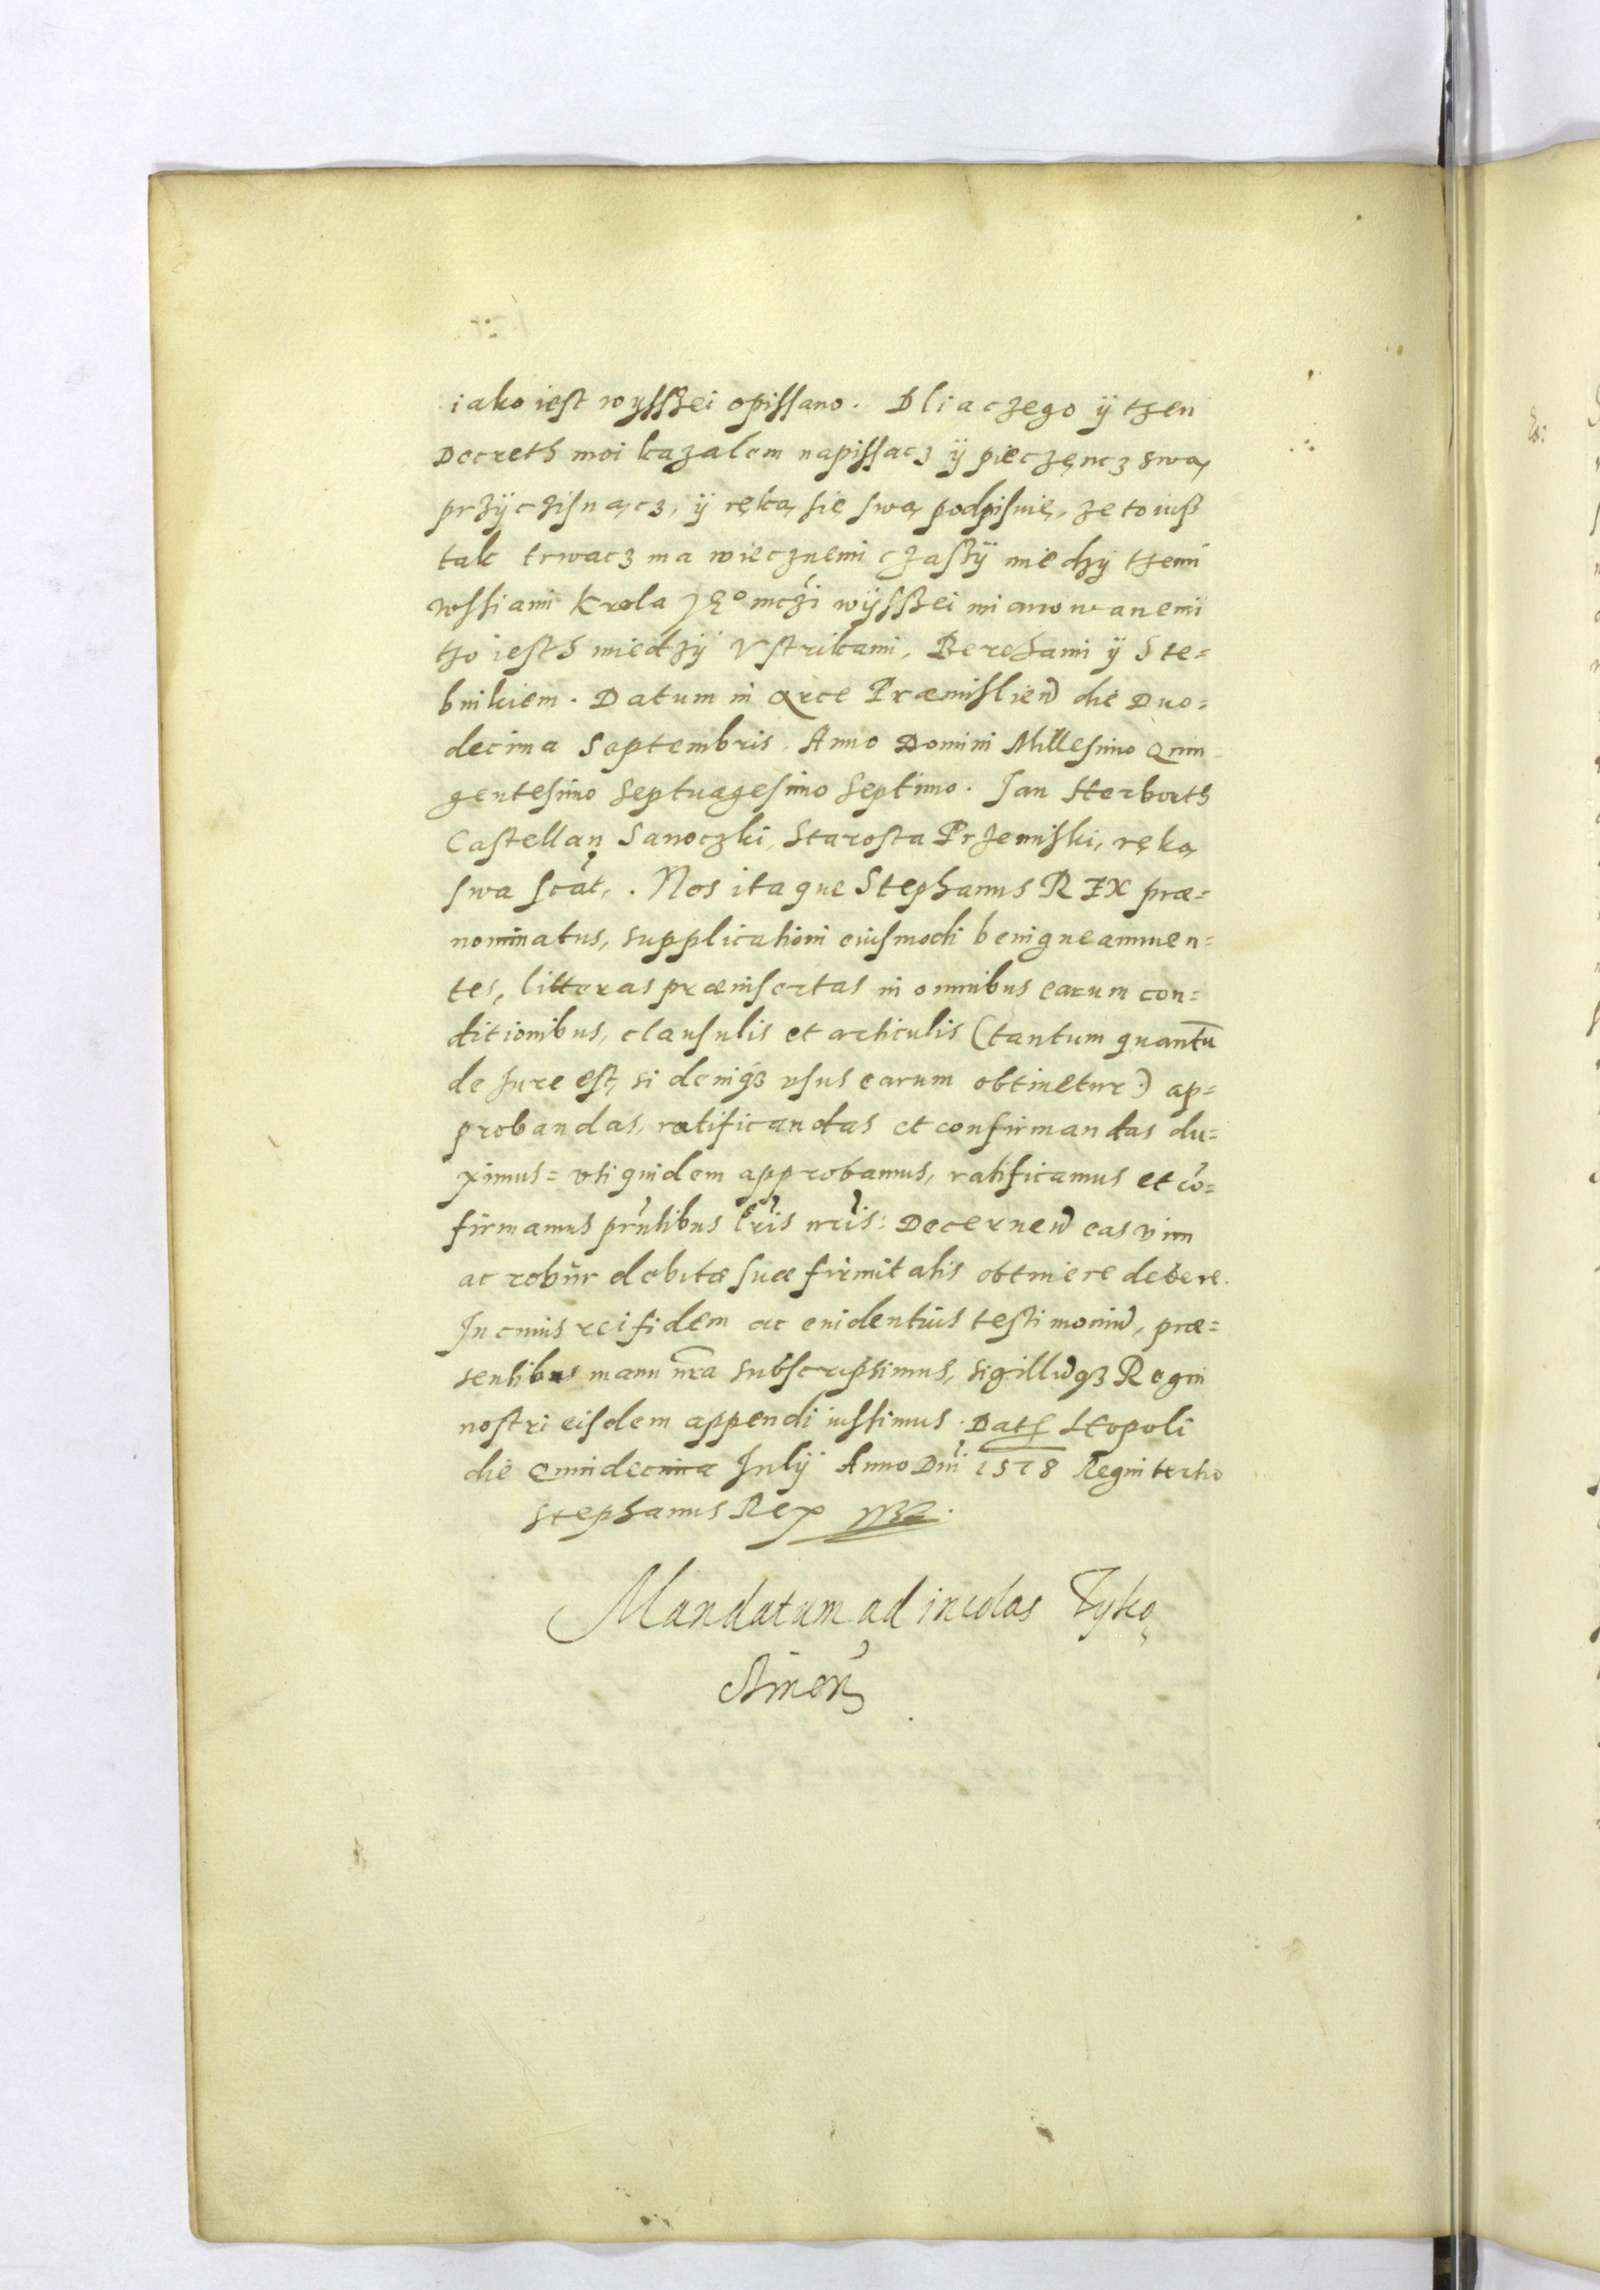 iako iest wyſſzei opiſſano. Dliaczego ÿ tzen
Decreth moi kazalem napiſſacz ÿ pieczęncz swą
przÿcziſnącz, ÿ ręką ſie ſwą podpiſuię, ze to iuß
tak trwacz ma wiecznemi czaſßÿ miedzÿ tzemi
wſſiami Krola Je° mczi wÿſſzei mianowanemi
tzo iesth miedzÿ Vſtrikami, Berehami ÿ Ste=
bnikiem. Datum in Arce Præmisliens die Duo=
decima Septembris. Anno Domini Millesimo Quin
gentesimo Septuagesimo Septimo. Jan Herborth
Caſtellan Sanoczki, Staroſta Przemiſki, ręką
ſwa ſcat. Nos itaque Stephanus REX præ=
nominatus, supplicationi eiuſmodi benigne annuen=
tes, litteras præinſertas in omnibus earum con=
ditionibus, clauſulis et articulis (tantum quantū
de Jure eſt, si deniqʒ uſus earum obtinetur.) ap=
probandas, ratificandas et confirmandas du=
ximus= uti quidem approbamus, ratificamus et cō=
firmamus pñtibus lris nris: Decerneñ eas vim
ac robur debitæ ſuæ firmitatis obtinere debere.
In cuius rei fidem ac euidentius teſtimoniũ, præ=
sentibus manu nra subſcripsimus, sigillũqʒ Regni
noſtri eiſdem appendi iuſſimus. Dat Leopoli
die Quindecima Julÿ Anno Dni 1578 Regni tertio
Stephanus Rex
Mandatum ad incolas Tyko
ſtinen̄